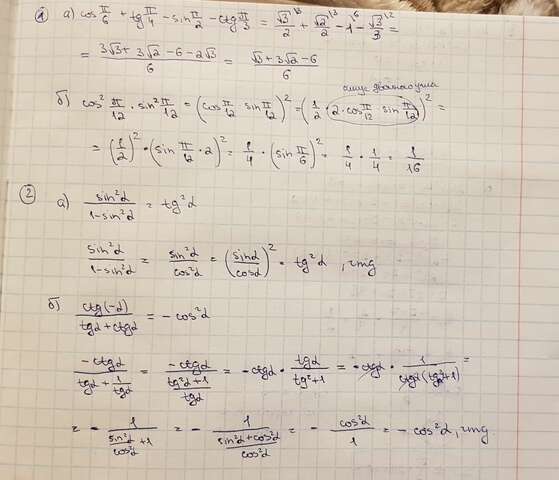 ① а) cos π/6 + tg π/4 - sin π/2 - ctg π/3 = √3/2 + √2/2 - 1 - √3/3 =
= (3√3 + 3√2 - 6 - 2√3)/6 = (√3 + 3√2 - 6)/6
б) cos² π/12 · sin² π/12 = (cos π/12 sin π/12)² = (1/2 · 2 · cos π/12 sin π/12)² =
= (1/2)² · (sin π/12 · 2)² = 1/4 · (sin π/6)² = 1/4 · 1/4 = 1/16
② а) sin²α/(1-sin²α) = tg²α
sin²α/(1-sin²α) = sin²α/cos²α = (sinα/cosα)² = tg²α, чтд
б) ctg(-α)/(tgα + ctgα) = -cos²α
-ctgα/(tgα + 1/tgα) = -ctgα/((tg²α+1)/tgα) = -ctgα · tgα/(tg²+1) = -ctgα · 1/(ctgα(tg²α+1)) =
= - 1/(sin²α/cos²α + 1) = - 1/((sin²α+cos²α)/cos²α) = - cos²α/1 = - cos²α, чтд.